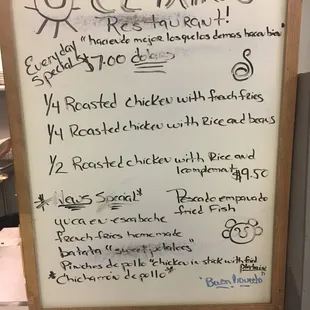 Restaurant!
"haciendo mejor lo que los demas hacen bien"
Everyday
Specials $7.00 dolares
1/4 Roasted chicken with french fries
1/4 Roasted chicken with Rice and beans
1/2 Roasted chicken with Rice and
1 complement $9.50
*News Special*
Pescado empanado
fried Fish
yuca en escabeche
french fries homemade
batata "sweet potatoes"
Pinchos de pollo "chicken in stick with fried
plantains
*Chicharron de pollo*
"Buen Provecho"